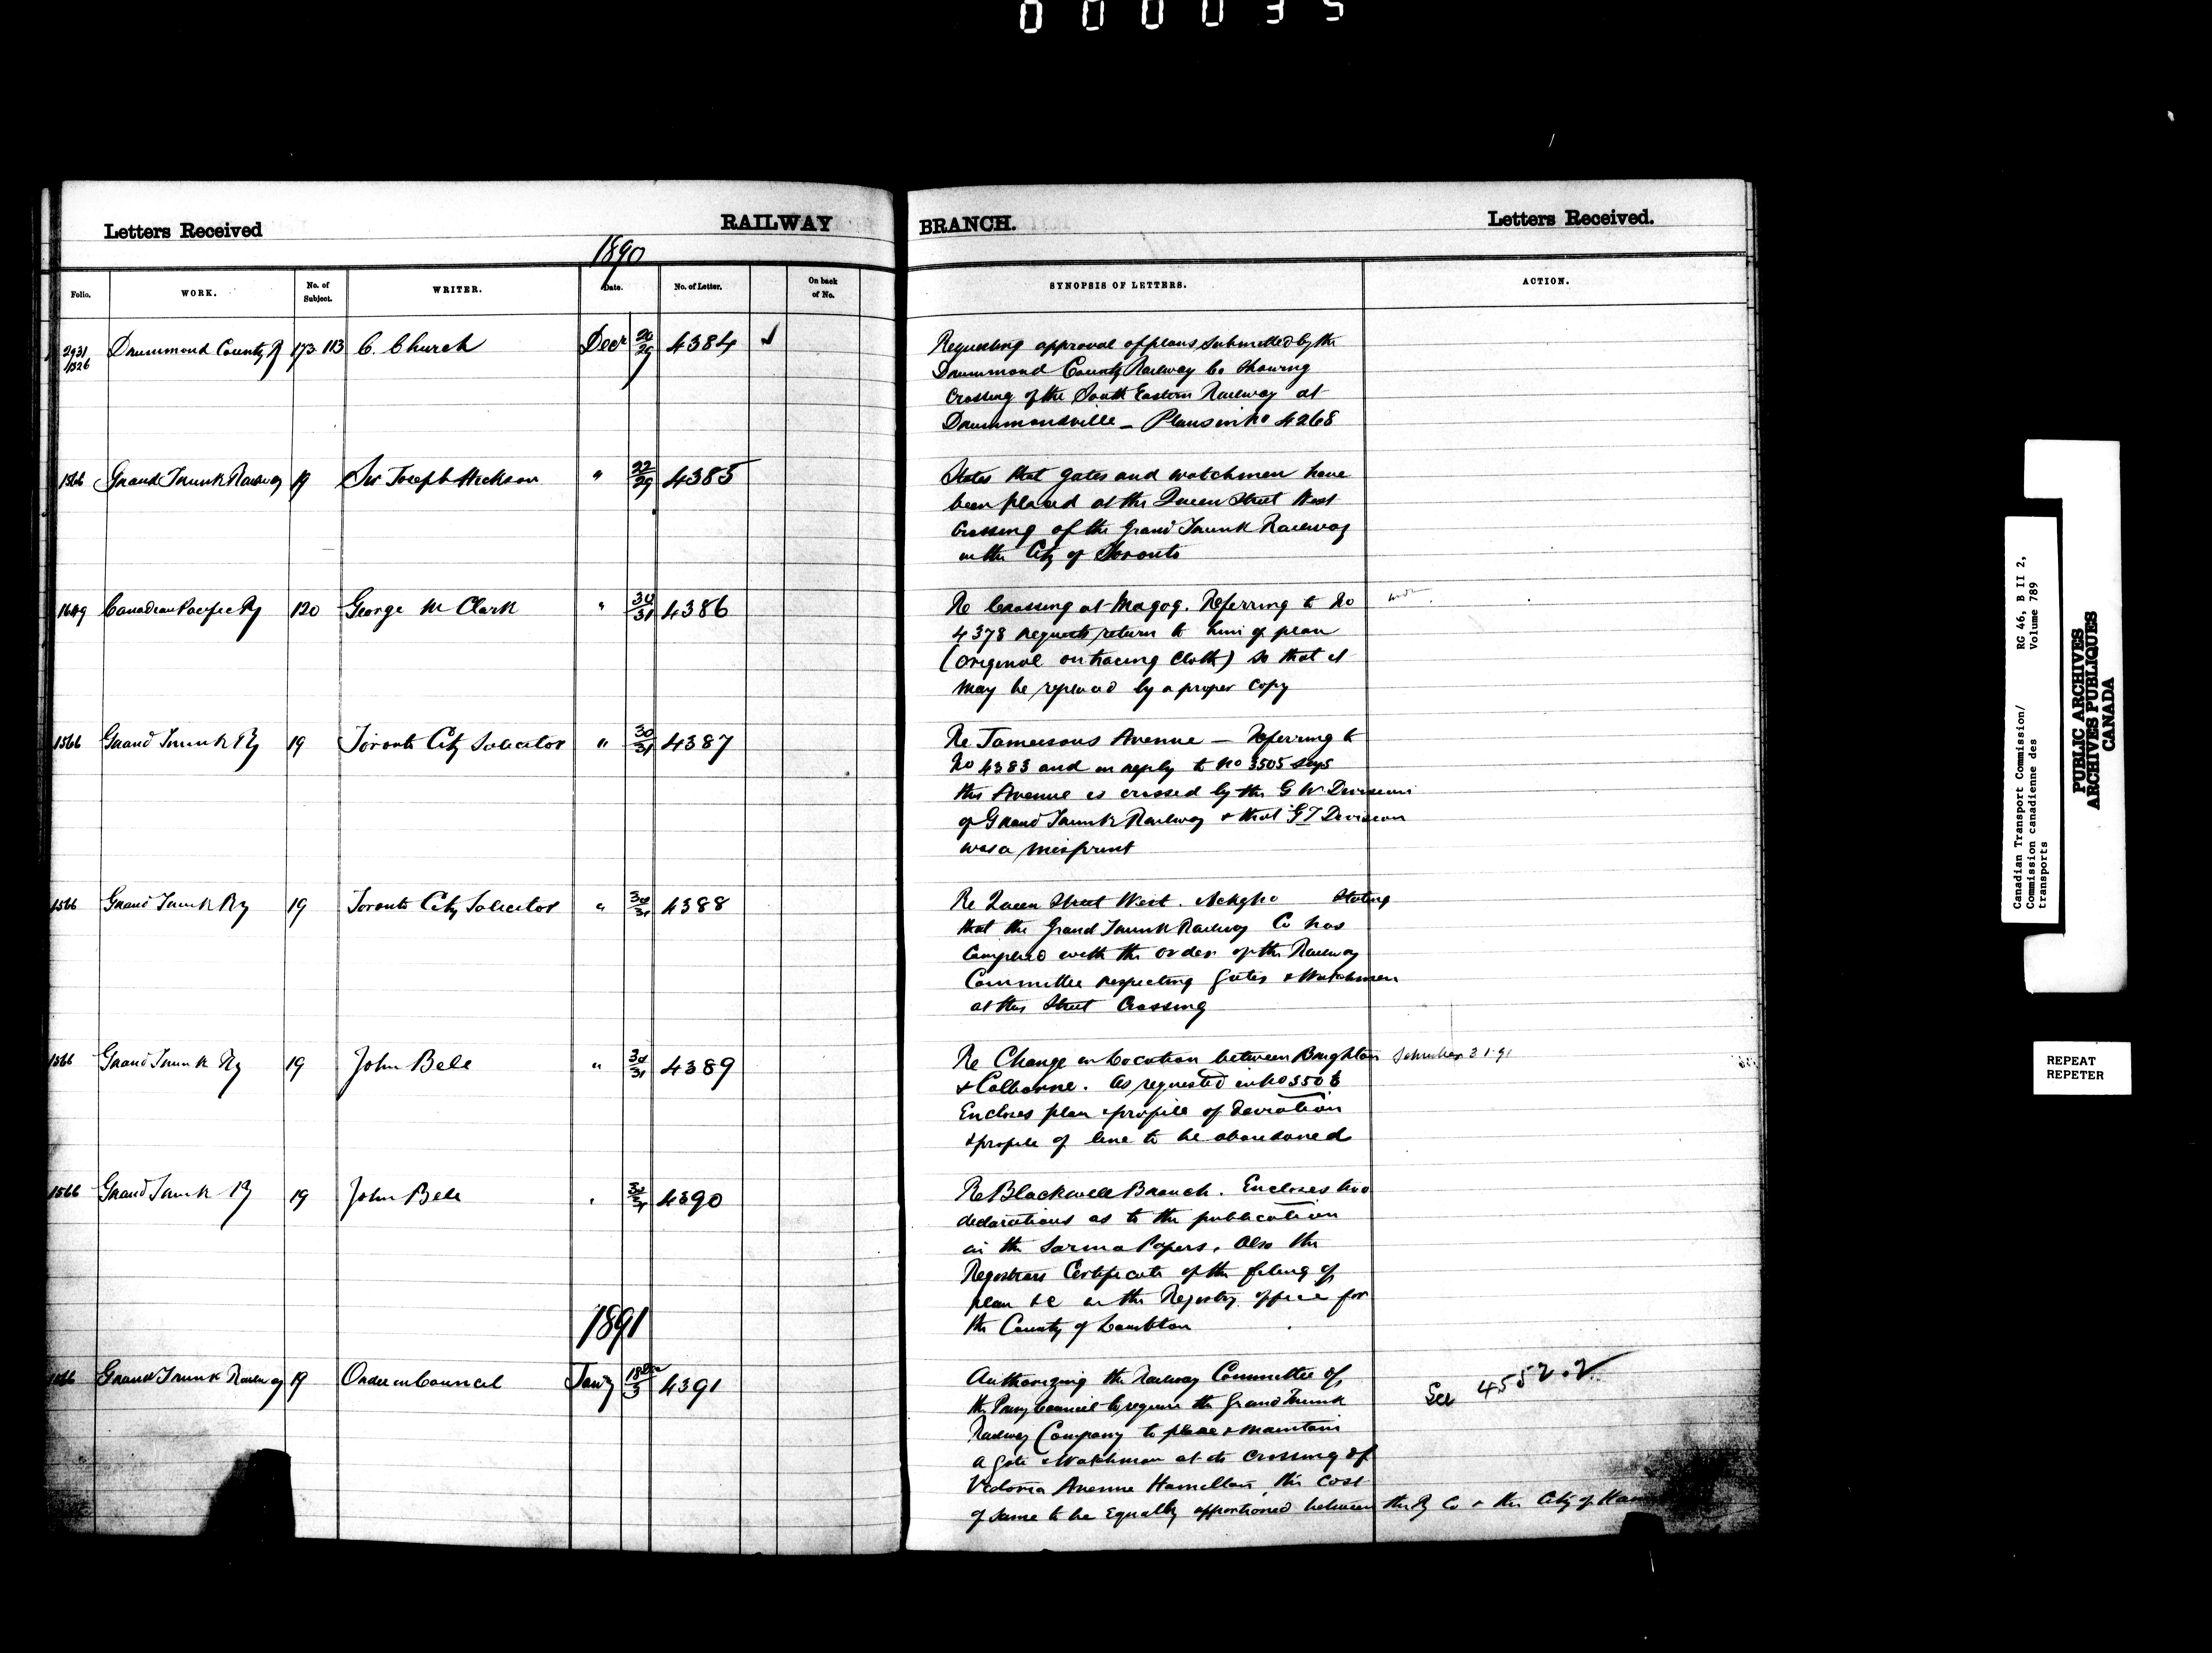 000035
Letters Received RAILWAY BRANCH. Letters Received.
1890
Folio. WORK. No. of Subject. WRITER. Date. No. of Letter. On back of No. SYNOPSIS OF LETTERS. ACTION.
2931 1326 Drummond County Ry 173 113 C. Church Decr 20/29 4384
Requesting approval of plans submitted by the
Drummond County Railway Co showing
crossing of the South Eastern Railway at
Drummondville _ Plans in No 4268
1566 Grand Trunk Railway 19 Sir Joseph Hickson " 22/29 4385
States that gates and watchmen have
been placed at the Queen Street West
Crossing of the Grand Trunk Railway
in the City of Toronto
1649 Canadian Pacific Ry 120 George M Clark " 30/31 4386
Re Crossing at Magog. Referring to No
4378 requests return to him of plan
(original on tracing cloth) so that it
may be replaced by a proper copy
1566 Grand Trunk Ry 19 Toronto City Solicitor " 30/31 4387
Re Jamesons Avenue — Referring to
No 4383 and in reply to No 3505 says
this Avenue is crossed by the G W Division
of Grand Trunk Railway & that G T Division
was a misprint
1566 Grand Trunk Ry 19 Toronto City Solicitor " 30/31 4388
Re Queen Street West. Ackg No Stating
that the Grand Trunk Railway Co has
complied with the order of the Railway
Committee respecting Gates & Watchmen
at this Street Crossing
1566 Grand Trunk Ry 19 John Bell " 30/31 4389
Re Change in Location between Brighton Schreiber 2.1.91
& Colborne. As requested in No 3506
Encloses plan & profile of deviation
& profile of line to be abandoned
1566 Grand Trunk Ry 19 John Bell " 30/31 4390
Re Blackwell Branch. Encloses two
declarations as to the publication
in the Sarnia Papers. Also the
Registrars Certificate of the filing of
plan &c in the Registry office for
the County of Lambton
1891
1566 Grand Trunk Railway 19 Order in Council Jany 18 Dec/3 4391
Authorizing the Railway Committee of
the Privy Council to require the Grand Trunk See 4552.2
Railway Company to place & maintain
a gate & Watchman at its crossing of
Victoria Avenue Hamilton, the cost
of same to be equally apportioned between the Ry Co & the City of
Canadian Transport Commission/ RG 46, B II 2,
Commission canadienne des Volume 789
transports
PUBLIC ARCHIVES
ARCHIVES PUBLIQUES
CANADA
REPEAT
REPETER